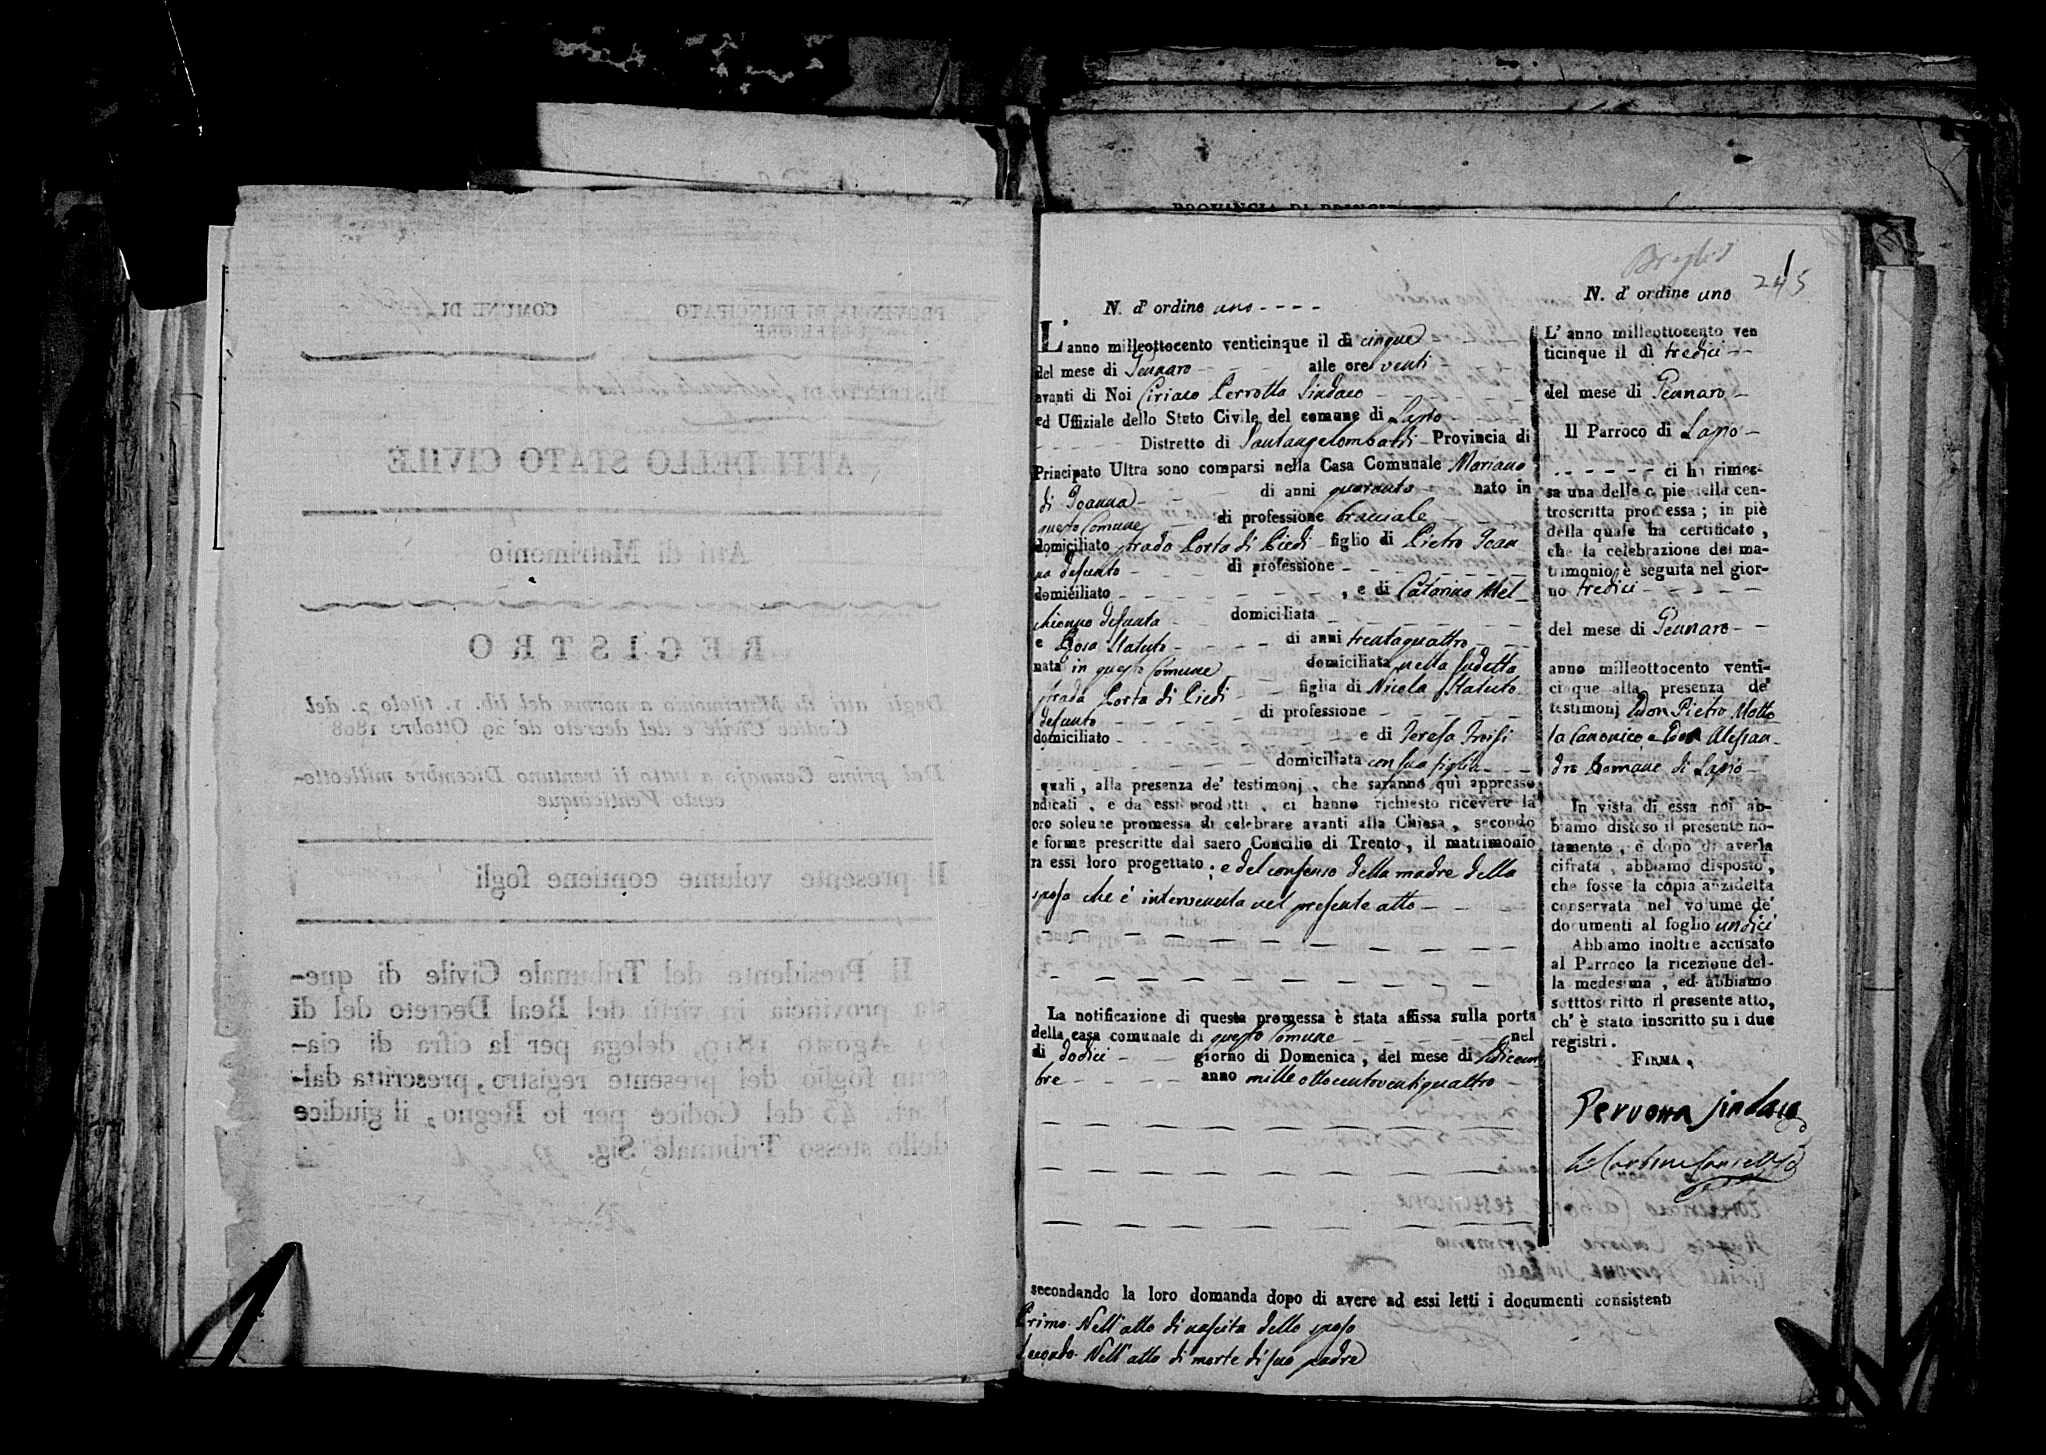 PROVINCIA DI PRINCIPATO
ULTERIORE
COMUNE DI
DISTRETTO DI
ATTI DELLO STATO CIVILE
Atti di Matrimonio
REGISTRO
Degli atti di Matrimonio a norma del lib. 1. titolo 2. del
Codice Civile e del decreto de' 29 Ottobre 1808
Dal primo Gennajo a tutto li trentuno Dicembre milleotto-
cento Venticinque
Il presente volume contiene fogli
Il Presidente del Tribunale Civile di que-
sta provincia in virtù del Real Decreto del dì
Agosto 1819, delega per la cifra di cia-
scun foglio del presente registro, prescritta dal-
l'art. 43 del Codice per lo Regno, il giudice
dello stesso Tribunale Sig.
PROVINCIA DI PRINCI
245
N. d' ordine uno
L' anno milleottocento venticinque il dì cinque
del mese di Gennaro alle ore venti
avanti di Noi Ciriaco Perrotta Sindaco
ed Uffiziale dello Stato Civile del comune di Lapio
Distretto di Santangelombardi Provincia di
Principato Ultra sono comparsi nella Casa Comunale Mariano
di Joanna di anni quaranta nato in
questo Comune di professione bracciale
domiciliato strada Porta di Piedi figlio di Pietro Joan
na defunto di professione
domiciliato , e di Catarina Mel
chionno defunta domiciliata
e Rosa Statuto di anni trentaquattro
nata in questo Comune domiciliata nella sudetta
strada Porta di Piedi figlia di Nicola Statuto
defunto di professione
domiciliato e di Teresa Troisi
domiciliata con sua figlia
quali, alla presenza de' testimonj, che saranno quì appresso
ndicati, e da essi prodotti, ci hanno richiesto ricevere la
oro solenne promessa di celebrare avanti alla Chiesa, secondo
e forme prescritte dal sacro Concilio di Trento, il matrimonio
ra essi loro progettato; e del consenso della madre della
sposa che è intervenuta nel presente atto
La notificazione di questa promessa è stata affissa sulla porta
della casa comunale di questo Comune nel
dì dodici giorno di Domenica, del mese di Dicem
bre anno mille ottocentoventiquattro
secondando la loro domanda dopo di avere ad essi letti i documenti consistenti
Primo. Nell' atto di nascita dello sposo
Secondo. Nell' atto di morte di suo padre
N. d' ordine uno
L' anno milleottocento ven
ticinque il dì tredici
del mese di Gennaro
Il Parroco di Lapio
ci ha rimes-
sa una delle copie della con-
troscritta promessa; in piè
della quale ha certificato,
che la celebrazione del ma-
trimonio è seguita nel gior-
no tredici
del mese di Gennaro
anno milleottocento venti-
cinque alla presenza de'
testimonj Don Pietro Motto
la Canonico, e Don Alessan-
dro Romano di Lapio
In vista di essa noi ab-
biamo disteso il presente no-
tamento, e dopo di averla
cifrata, abbiamo disposto,
che fosse la copia anzidetta
conservata nel volume de'
documenti al foglio undici
Abbiamo inoltre accusato
al Parroco la ricezione del-
la medesima, ed abbiamo
sotttoscritto il presente atto,
ch' è stato inscritto su i due
registri.
FIRMA,
Sindaco